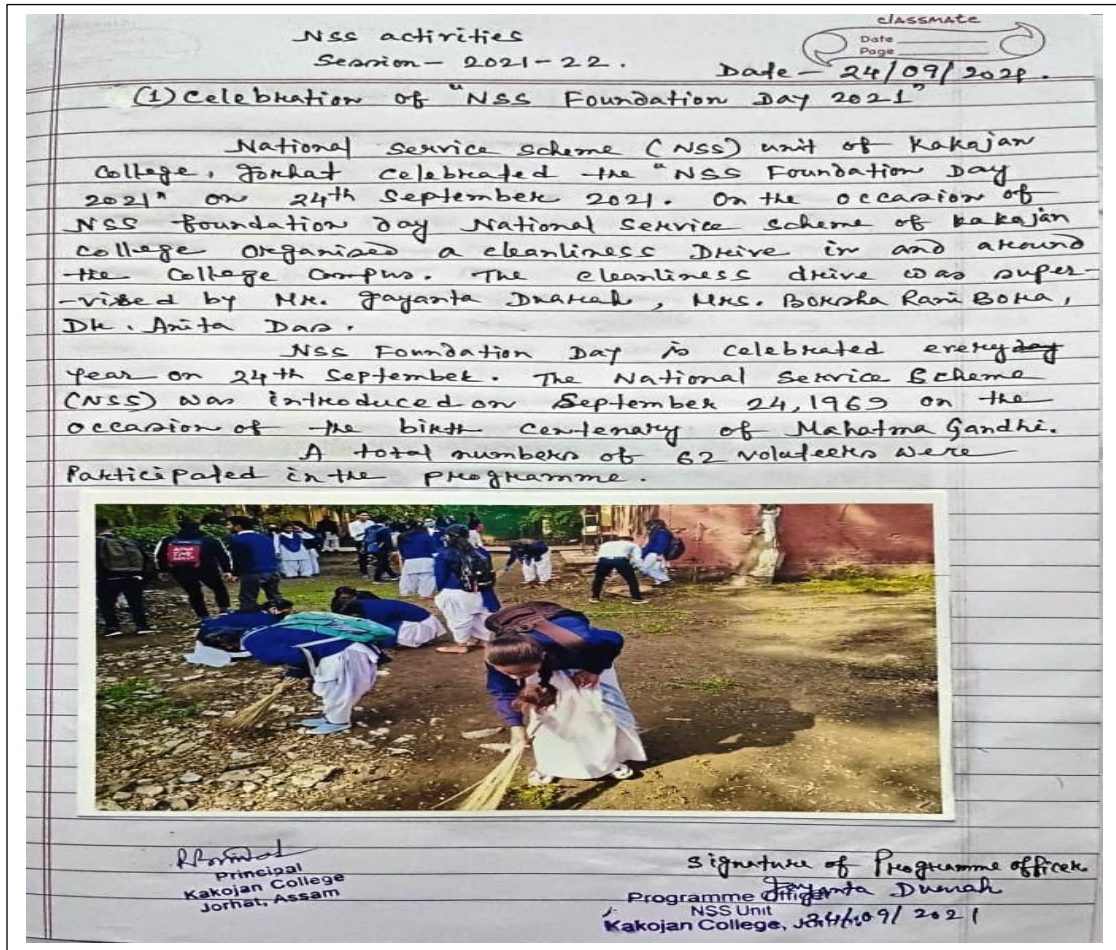 classmate
Date
Page
NSS activities
Session - 2021-22.
Date - 24/09/2021.
(1) Celebration of "NSS Foundation Day 2021"
National Service Scheme (NSS) unit of Kakajan
College, Jorhat celebrated the "NSS Foundation Day
2021" on 24th September 2021. On the occasion of
NSS foundation day National Service Scheme of Kakajan
College organised a cleanliness Drive in and around
the College Campus. The cleanliness drive was super-
-vised by Mr. Jayanta Duarah, Mrs. Borsha Rani Bora,
Dr. Anita Das.
NSS Foundation Day is celebrated every day
year on 24th September. The National Service Scheme
(NSS) was introduced on September 24, 1969 on the
occasion of the birth centenary of Mahatma Gandhi.
A total numbers of 62 voluteers were
Participated in the programme.
Principal
Kakojan College
Jorhat, Assam
Signature of Programme officer
Jayanta Duarah
Programme Officer
NSS Unit
Kakojan College,
24/09/2021